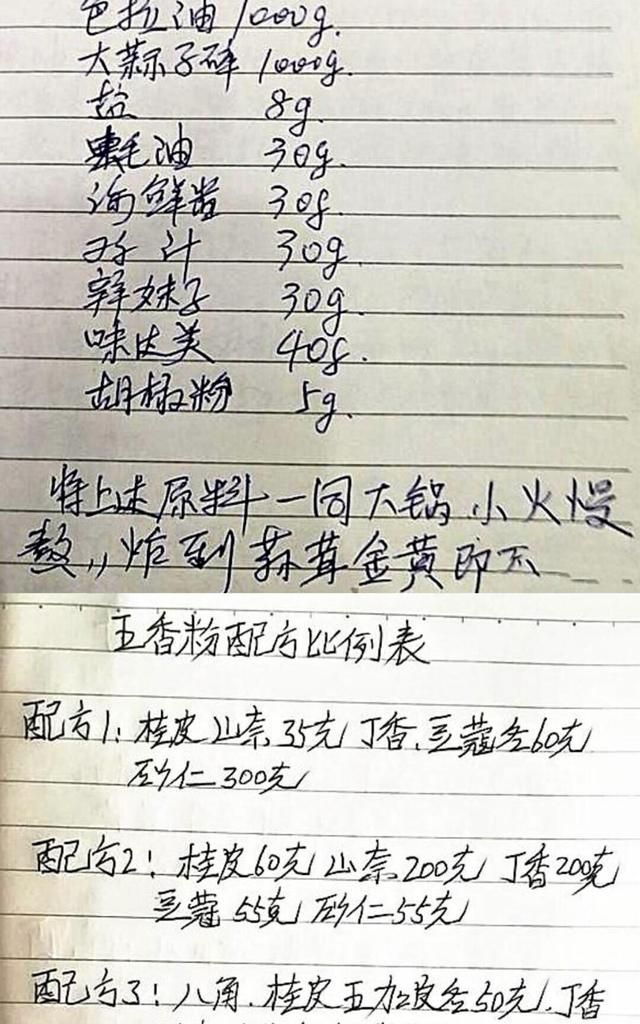 色拉油 1000g.
大蒜子碎 1000g.
盐 8g.
蚝油 30g.
海鲜酱 30g.
蚝汁 30g.
辣妹子 30g.
味达美 40g.
胡椒粉 5g.
将上述原料一同大锅小火慢
熬,,炸到蒜茸金黄即可
五香粉配方比例表
配方1: 桂皮 山奈 35克 丁香.豆蔻各60克
砂仁 300克
配方2: 桂皮60克 山奈200克 丁香200克
豆蔻 55克 砂仁55克
配方3: 八角.桂皮五加皮各50克.丁香